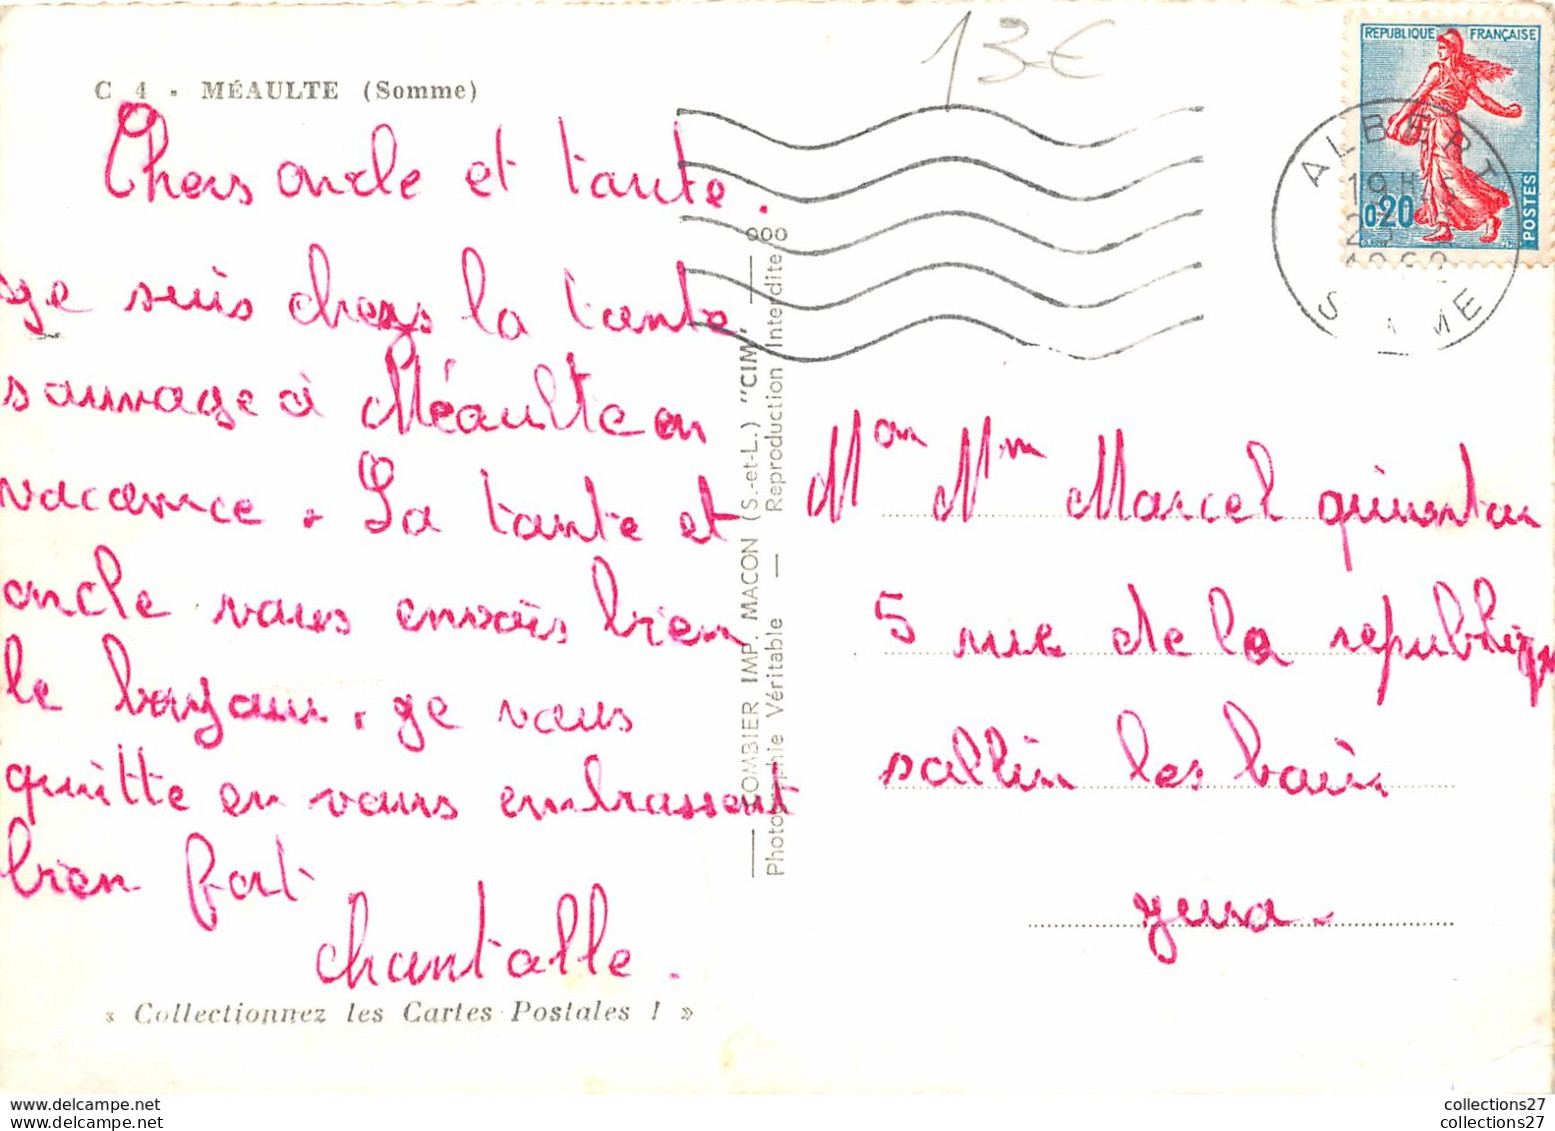 13€
REPUBLIQUE FRANÇAISE
0,20
POSTES
ALBERT
19H
SOMME
C 4 - MÉAULTE (Somme)
Chers oncle et tante.
ge suis chezs la tante
sauvage à Méaulte en
vacance. La tante et
oncle vous envois bien
le bonjour. ge vous
quitte en vous embrassent
bien fort
chantalle.
« Collectionnez les Cartes Postales ! »
COMBIER IMP. MACON (S.-et-L.) "CIM"
Photographie Véritable — Reproduction Interdite
Mon Mm Marcel quinonton
5 rue de la republique
sallin les bain
yura
collections27
collections27
collections27
collections27